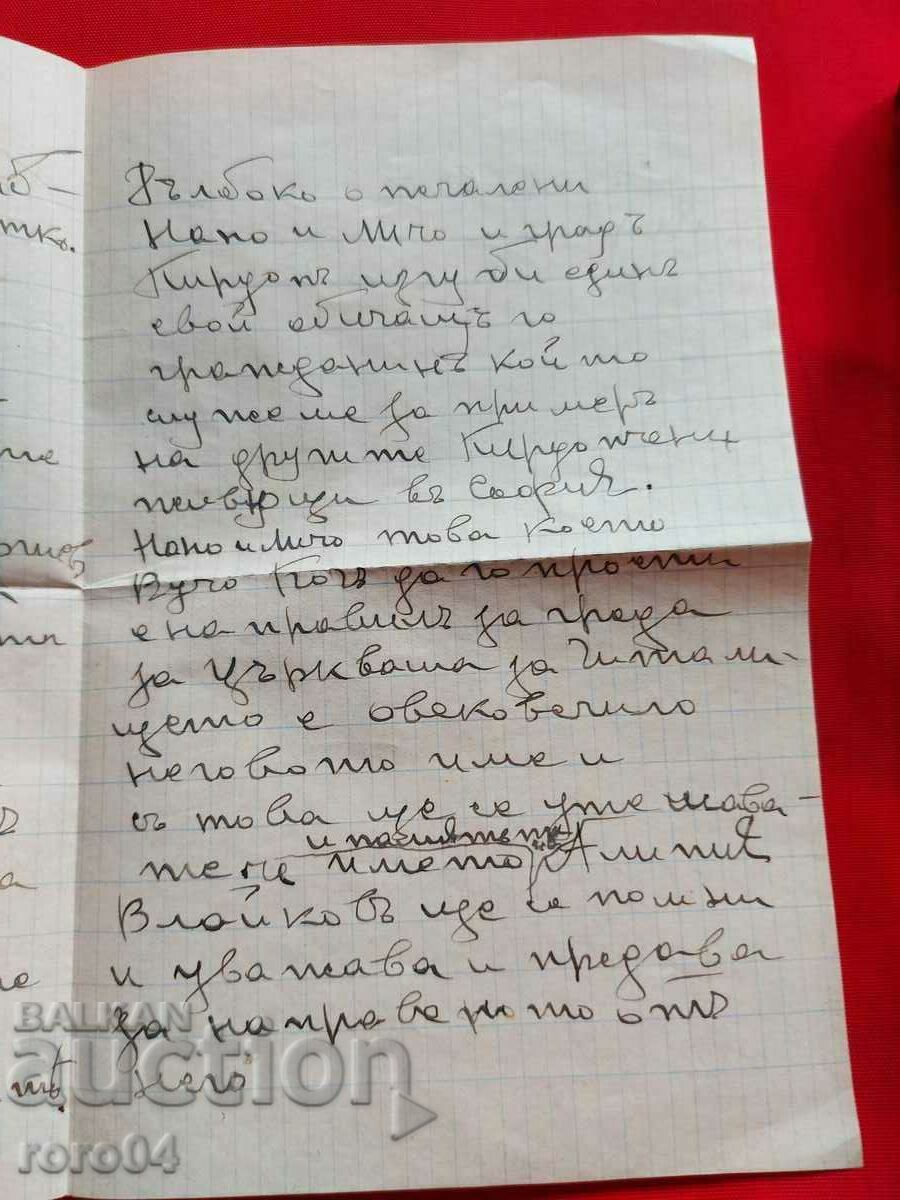 Дълбоко опечалени
Нано и Личо и градъ
Пирдопъ изгуби единъ
свой обичащъ го
гражданинъ който
служеше за примеръ
на другите Пирдопчени
живущи въ София.
Нано и Личо това което
Вучо Богъ да го прости
е направилъ за града
за Църквата за Читали-
щето е овековечило
неговото име и
съ това ще се утешава-
те че името
и паметьта на Алипий
Влайковъ ще се помни
и уважава и предава
за направеното отъ
него
BALKAN
auction
roro04